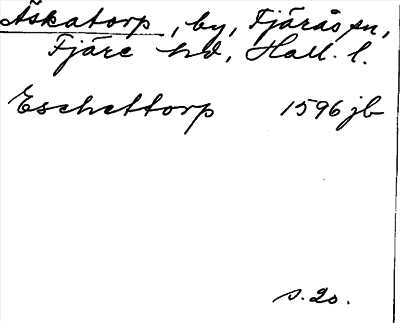 Äskatorp, by, Fjärås sn,
Fjäre hd, Hall. l.
Eschettorp 1596 jb
s. 20.